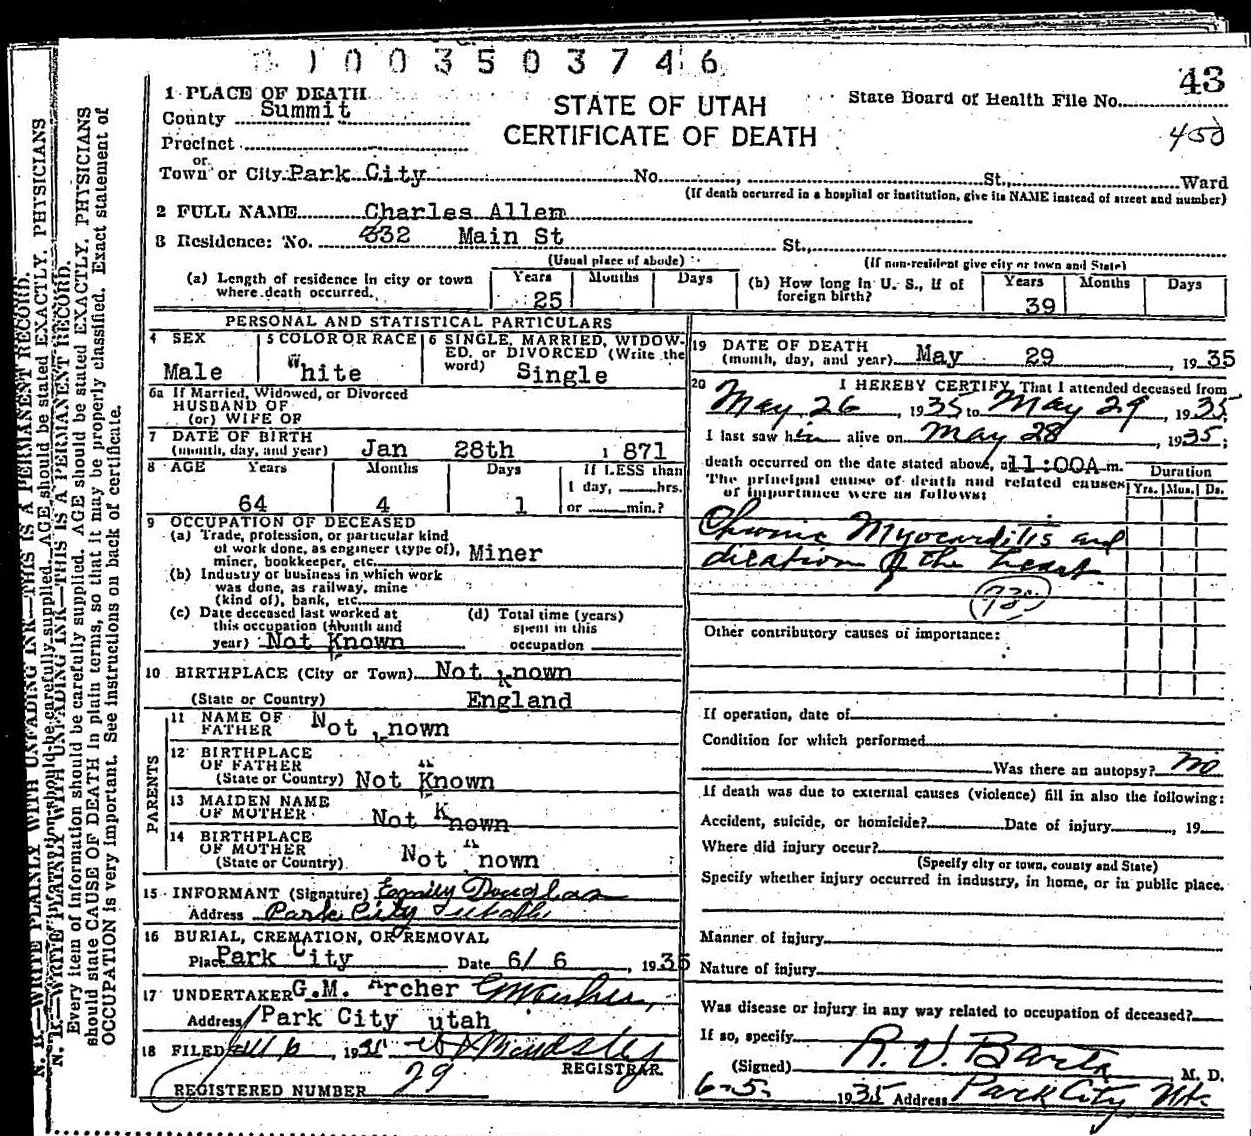 1003503746
43
1 PLACE OF DEATH
County Summit
STATE OF UTAH
CERTIFICATE OF DEATH
State Board of Health File No.
450
Precinct
or
Town or City Park City No. St., Ward
(If death occurred in a hospital or institution, give its NAME instead of street and number)
2 FULL NAME Charles Allen
3 Residence: No. 332 Main St St.,
(Usual place of abode) (If non-resident give city or town and State)
(a) Length of residence in city or town where death occurred. Years 25 Months Days
(b) How long in U. S., if of foreign birth? Years 39 Months Days
PERSONAL AND STATISTICAL PARTICULARS
4 SEX Male
5 COLOR OR RACE White
6 SINGLE, MARRIED, WIDOWED, or DIVORCED (Write the word) Single
6a If Married, Widowed, or Divorced
HUSBAND OF
(or) WIFE OF
7 DATE OF BIRTH
(month, day, and year) Jan 28th 1871
8 AGE Years Months Days If LESS than
64 4 1 1 day, hrs.
or min.?
9 OCCUPATION OF DECEASED
(a) Trade, profession, or particular kind
of work done, as engineer (type of),
miner, bookkeeper, etc. Miner
(b) Industry or business in which work
was done, as railway, mine
(kind of), bank, etc.
(c) Date deceased last worked at
this occupation (Month and
year) Not Known
(d) Total time (years)
spent in this
occupation
10 BIRTHPLACE (City or Town) Not Known
(State or Country) England
PARENTS
11 NAME OF
FATHER Not nown
12 BIRTHPLACE
OF FATHER
(State or Country) Not Known
13 MAIDEN NAME
OF MOTHER Not Known
14 BIRTHPLACE
OF MOTHER
(State or Country) Not nown
15 INFORMANT (Signature) Emily Douglas
Address Park City Utah
16 BURIAL, CREMATION, OR REMOVAL
Place Park City Date 6/ 6, 1935
17 UNDERTAKER G.M. Archer GM Archer
Address Park City utah
18 FILED 1935
REGISTRAR
REGISTERED NUMBER 29
19 DATE OF DEATH
(month, day, and year) May 29 1935
20 I HEREBY CERTIFY, That I attended deceased from
May 26, 1935 to May 29, 1935;
I last saw him alive on May 28, 1935;
death occurred on the date stated above, a 11:00A m.
The principal cause of death and related causes
of importance were as follows:
Duration
Yrs. Mos. Ds.
Chronic Myocarditis and
dilation of the heart
Other contributory causes of importance:
If operation, date of
Condition for which performed
Was there an autopsy? no
If death was due to external causes (violence) fill in also the following:
Accident, suicide, or homicide? Date of injury , 19
Where did injury occur?
(Specify city or town, county and State)
Specify whether injury occurred in industry, in home, or in public place.
Manner of injury
Nature of injury
Was disease or injury in any way related to occupation of deceased?
If so, specify
(Signed) , M. D.
6-5- 1935 Address Park City Utc
N. B.—WRITE PLAINLY WITH UNFADING INK—THIS IS A PERMANENT RECORD.
Every item of information should be carefully supplied. AGE should be stated EXACTLY. PHYSICIANS
should state CAUSE OF DEATH in plain terms, so that it may be properly classified. Exact statement of
OCCUPATION is very important. See instructions on back of certificate.